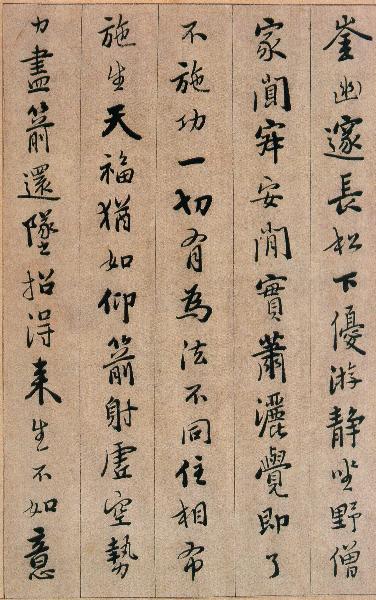 崟幽邃長松下優游静坐野僧
家闃寂安閒實蕭灑覺即了
不施功一切有為法不同住相布
施生天福猶如仰箭射虚空勢
力盡箭還墜招得来生不如意